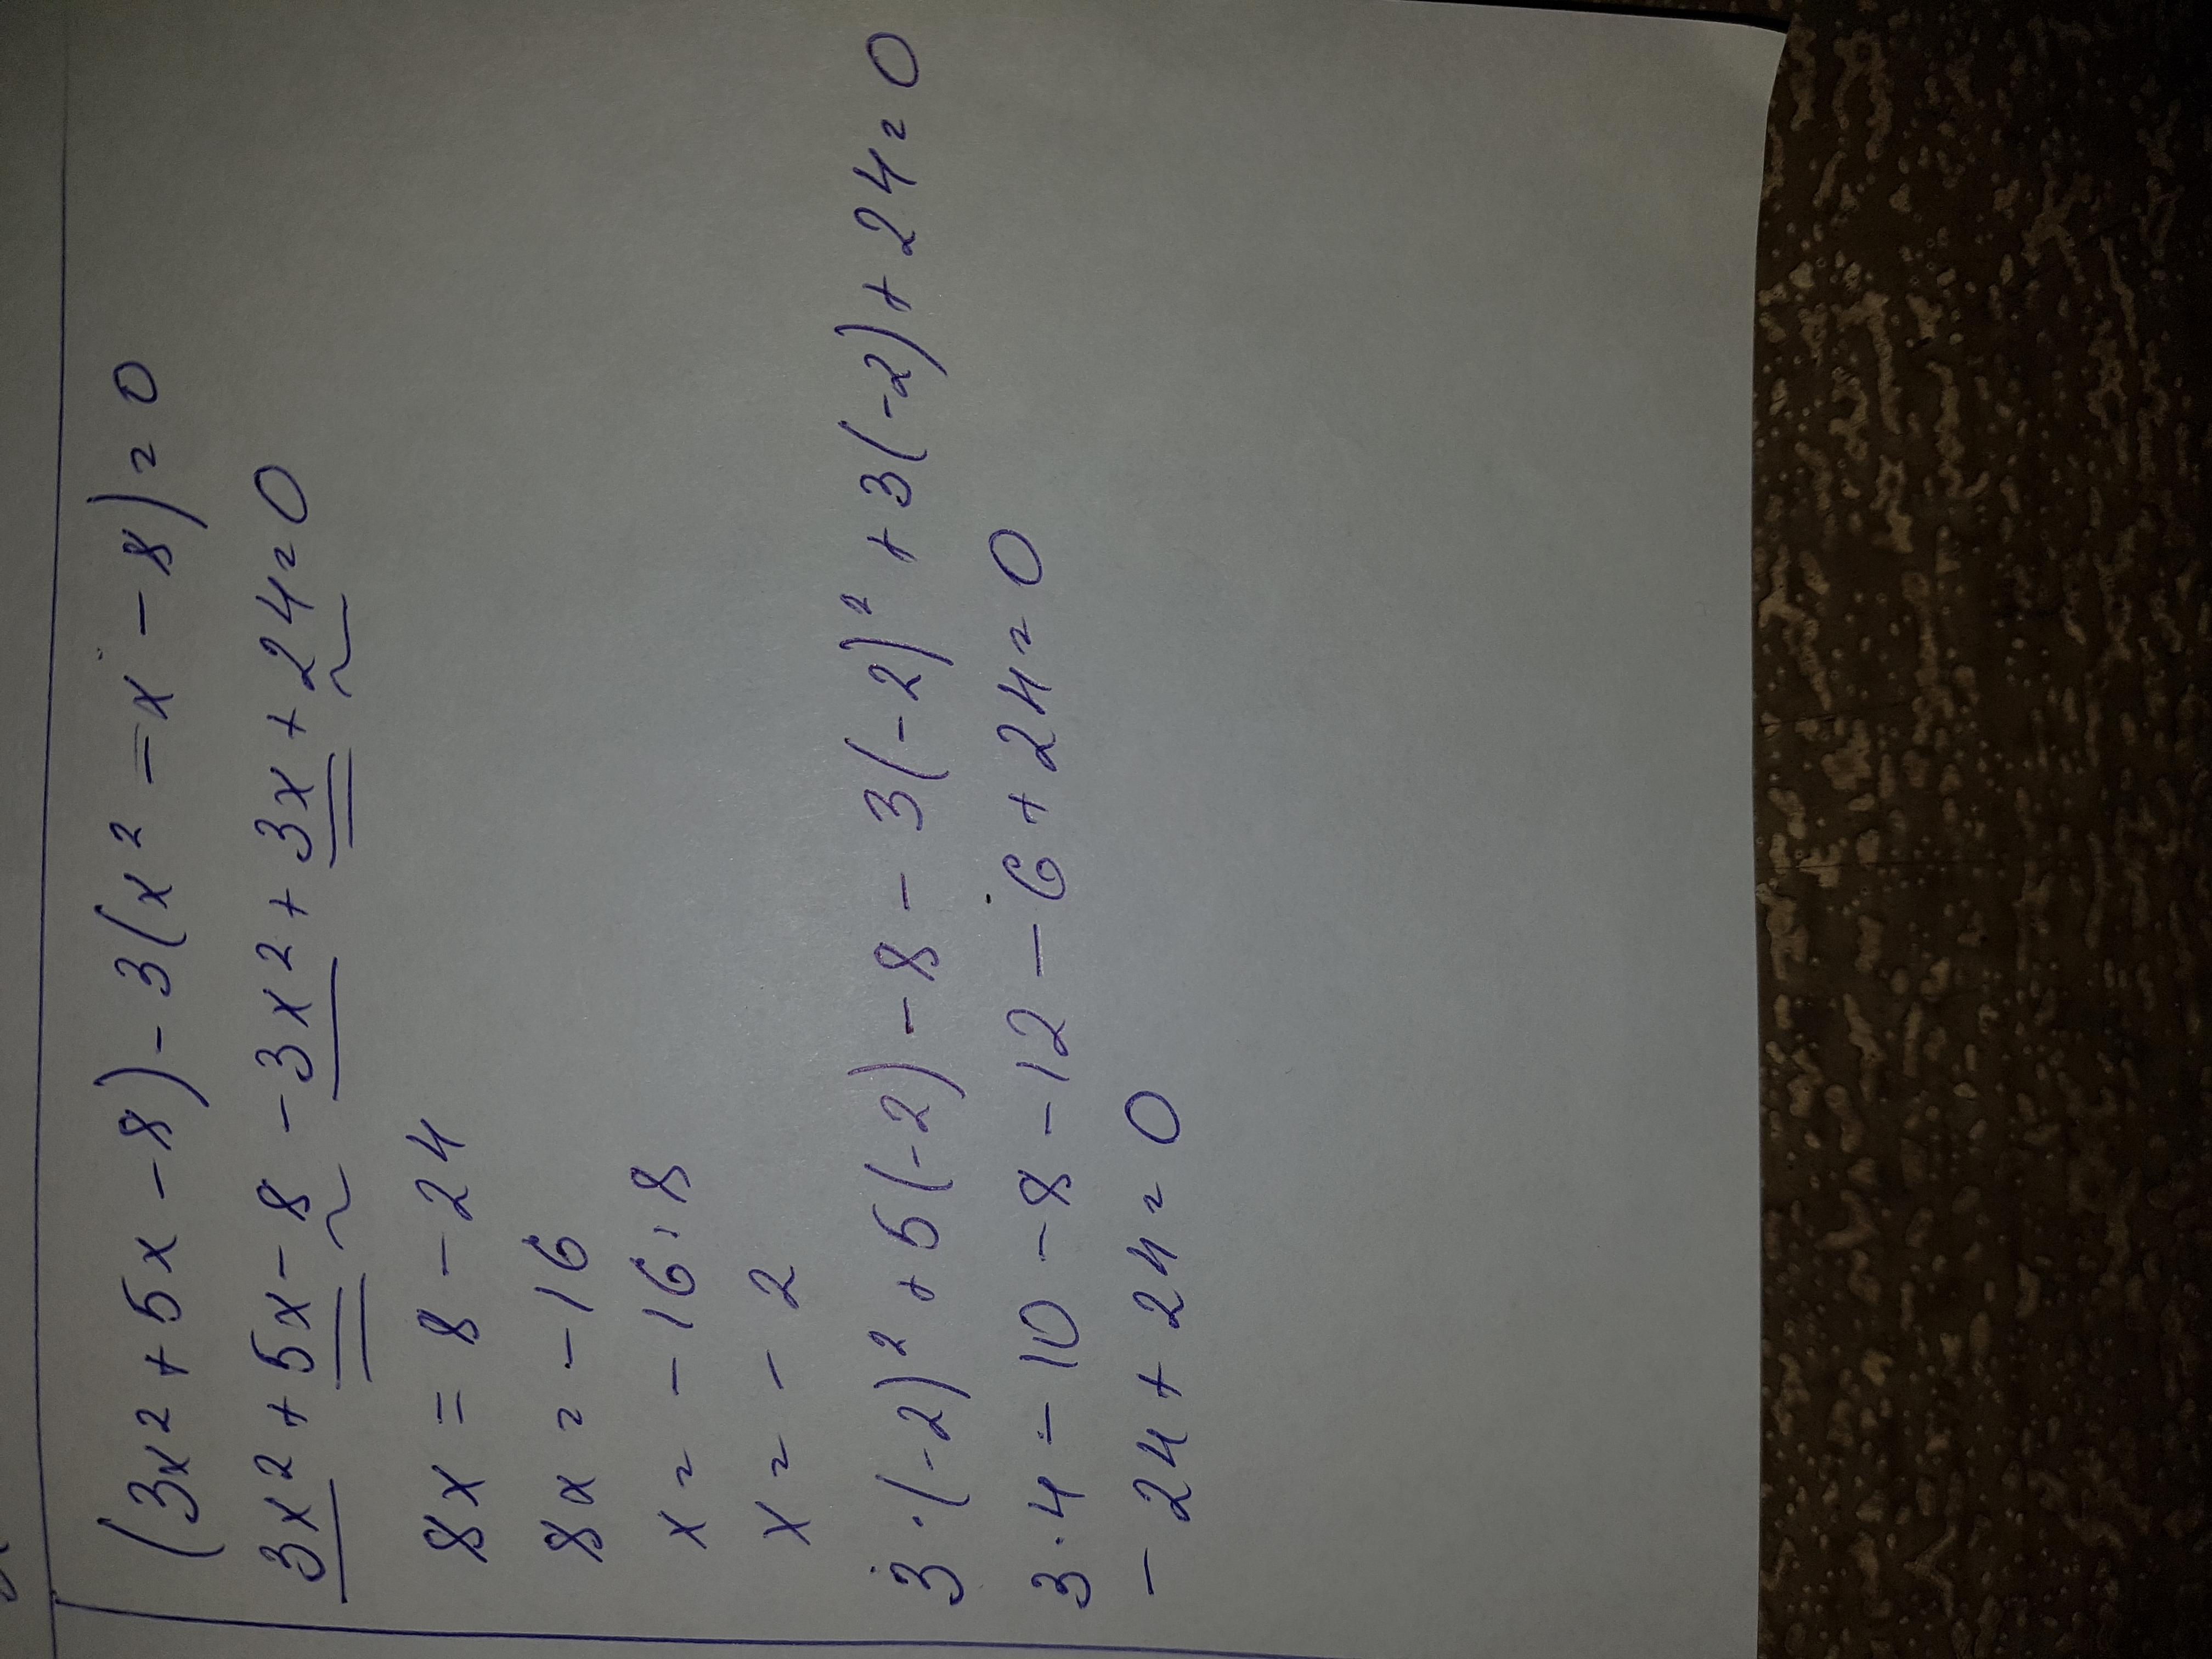 (3x² + 5x - 8) - 3(x² - x - 8) = 0
3x² + 5x - 8 - 3x² + 3x + 24 = 0
8x = 8 - 24
8x = -16
x = -16 : 8
x = -2
3·(-2)² + 5(-2) - 8 - 3(-2)² + 3(-2) + 24 = 0
3·4 - 10 - 8 - 12 - 6 + 24 = 0
-24 + 24 = 0